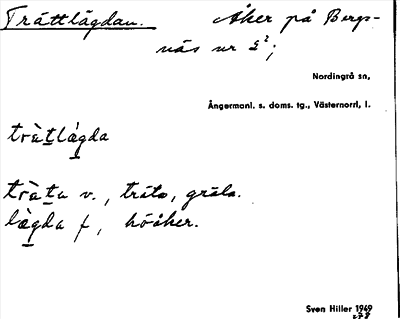 Trättlägdan. Åker på Bergs-
näs nr 2²;
Nordingrå sn,
Ångermanl. s. doms. tg., Västernorrl. l.
trà̀tlǽgda
trà̀ta v., träta, gräla.
lǽgda f, höåker.
Sven Hiller 1969